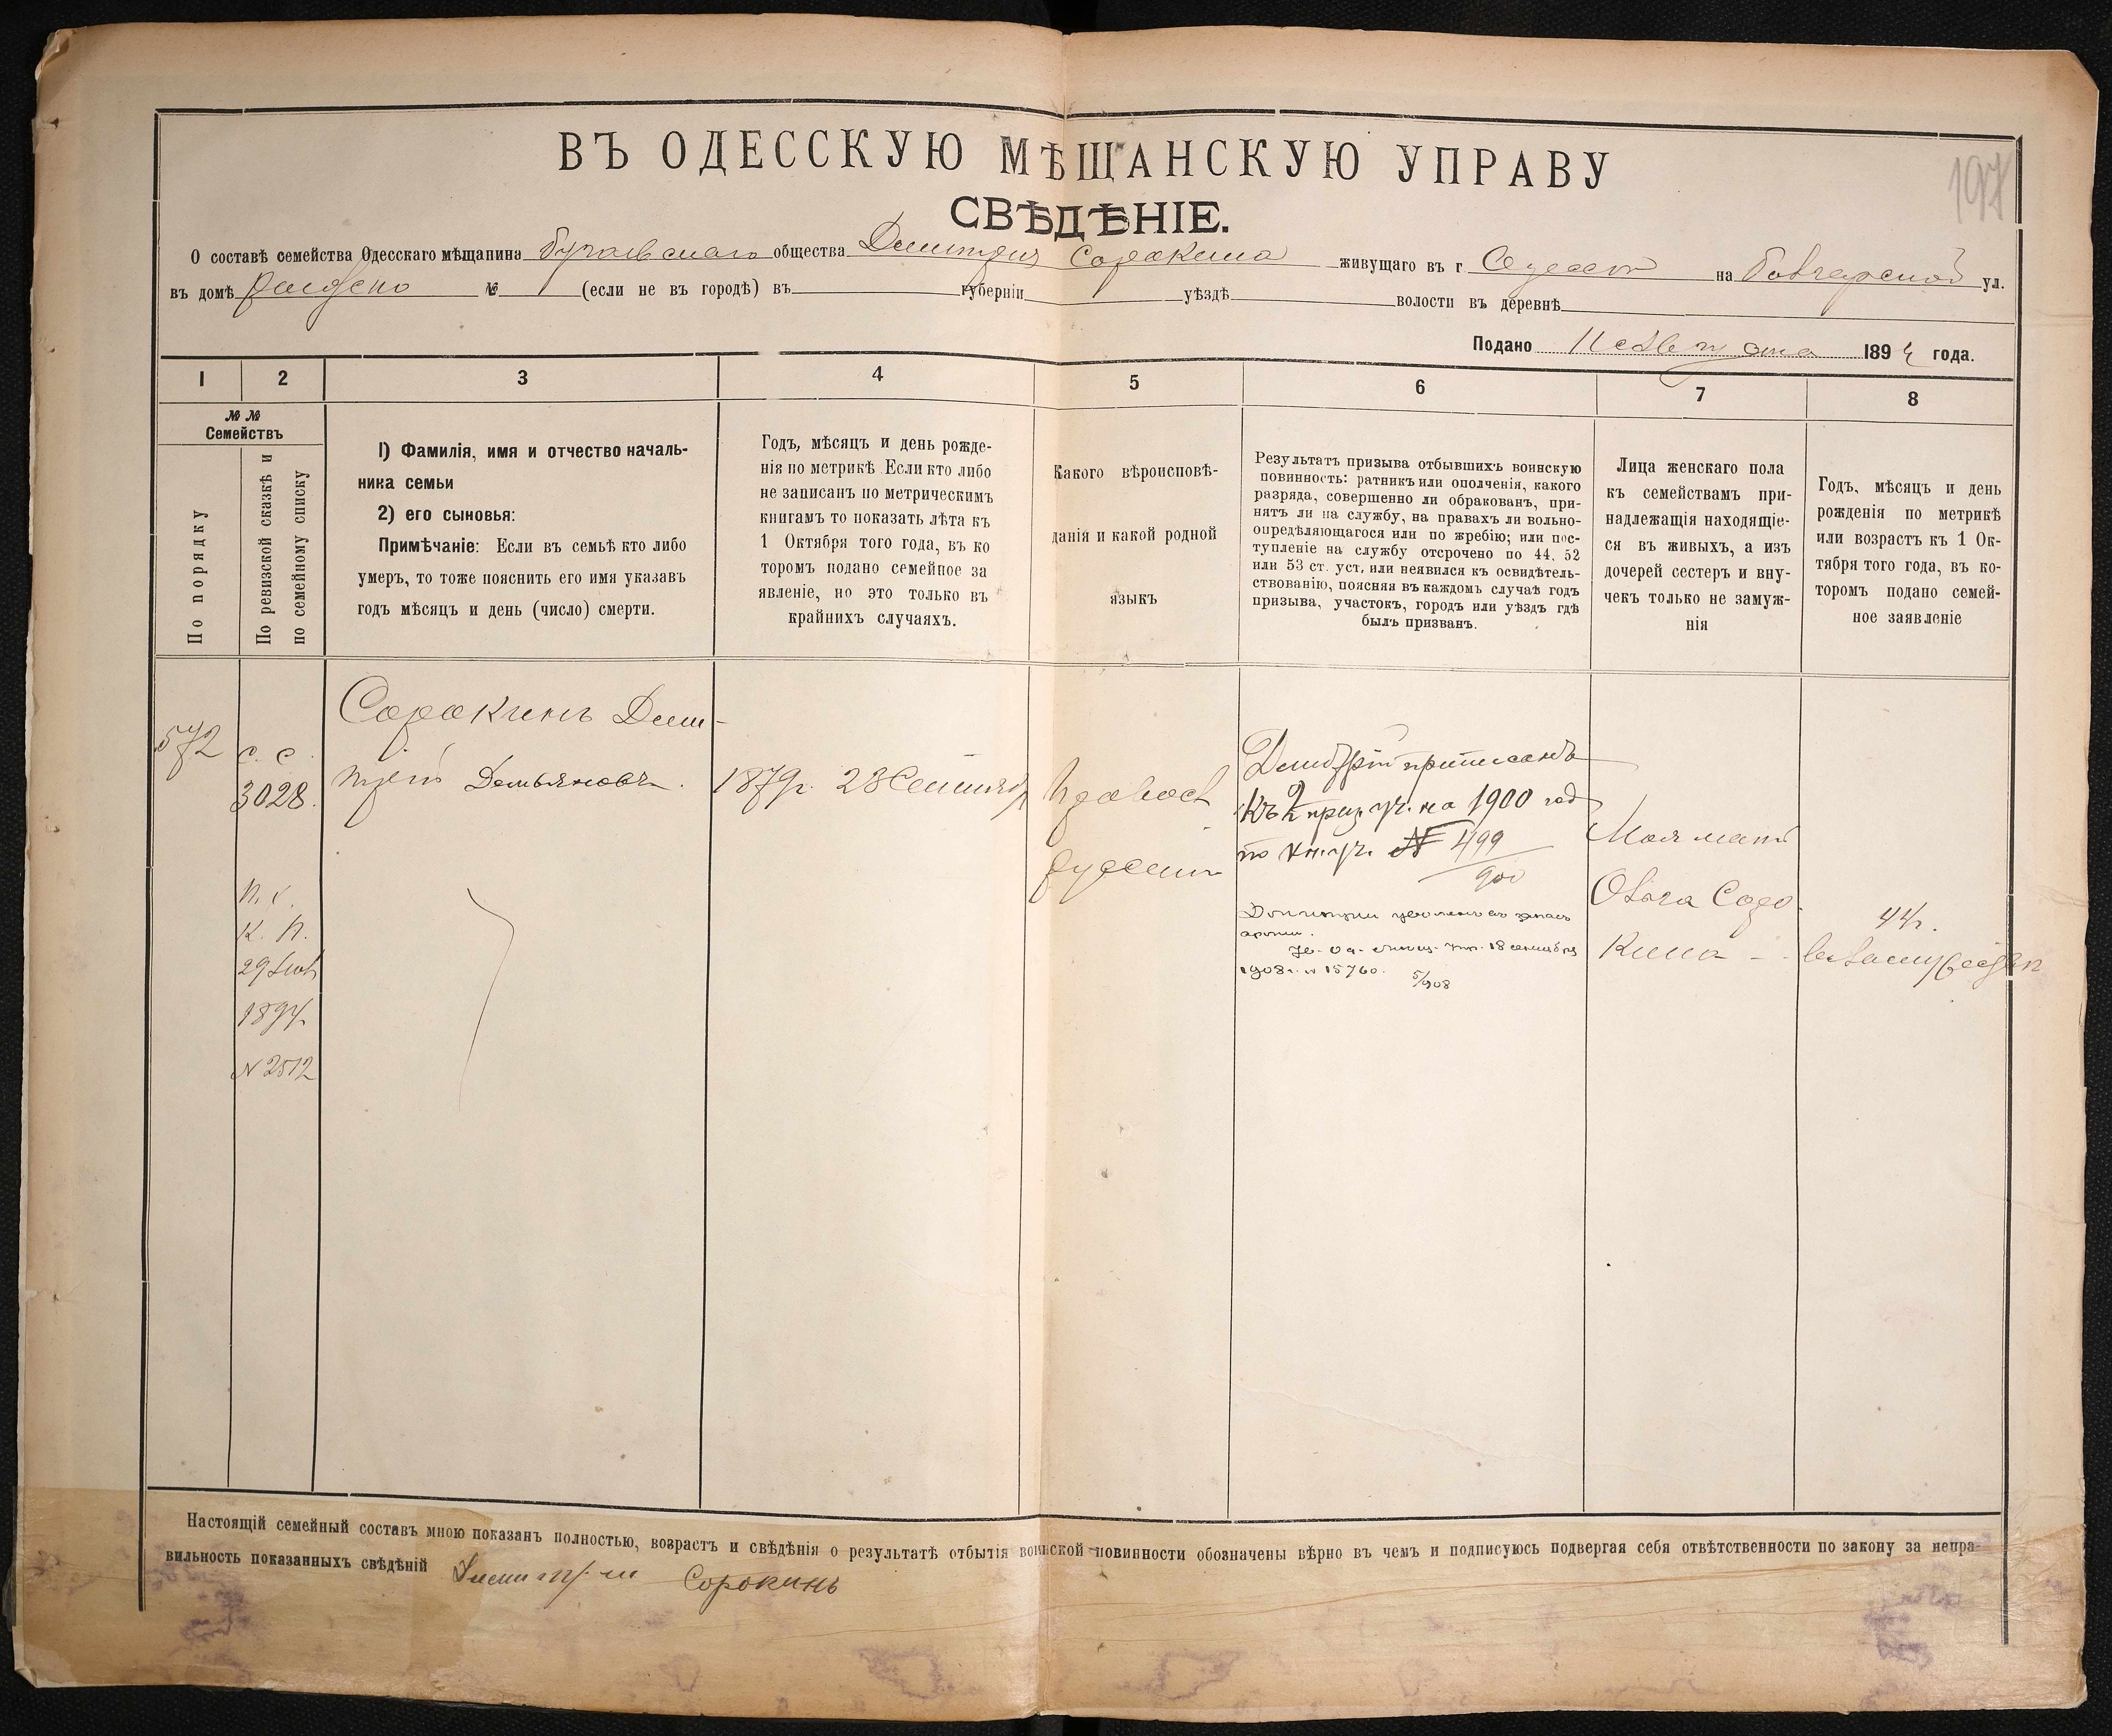 197
ВЪ ОДЕССКУЮ МѢЩАНСКУЮ УПРАВУ
СВѢДѢНІЕ.
О составѣ семейства Одесскаго мѣщанина общества Дмитрія Сорокина живущаго въ г Одессѣ на Болгарской ул.
въ домѣ № (если не въ городѣ) въ губерніи уѣздѣ волости въ деревнѣ
Подано 189 года.
1 2 3 4 5 6 7 8
№ №
Семействъ
По порядку
По ревизской сказкѣ и
по семейному списку
1) Фамилія, имя и отчество началь-
ника семьи
2) его сыновья:
Примѣчаніе: Если въ семьѣ кто либо
умеръ, то тоже пояснить его имя указавъ
годъ мѣсяцъ и день (число) смерти.
Годъ, мѣсяцъ и день рожде-
нія по метрикѣ. Если кто либо
не записанъ по метрическимъ
книгамъ то показать лѣта къ
1 Октября того года, въ ко
торомъ подано семейное за
явленіе, но это только въ
крайнихъ случаяхъ.
Какого вѣроисповѣ-
данія и какой родной
языкъ
Результатъ призыва отбывшихъ воинскую
повинность: ратникъ или ополченія, какого
разряда, совершенно ли обракованъ, при-
нятъ ли на службу, на правахъ ли вольно-
опредѣляющагося или по жребію; или пос-
тупленіе на службу отсрочено по 44. 52
или 53 ст. уст. или неявился къ освидѣтель-
ствованію, поясняя въ каждомъ случаѣ годъ
призыва, участокъ, городъ или уѣздъ гдѣ
былъ призванъ.
Лица женскаго пола
къ семействамъ при-
надлежащія находящіе-
ся въ живыхъ, а изъ
дочерей сестеръ и вну-
чекъ только не замуж-
нія
Годъ, мѣсяцъ и день
рожденія по метрикѣ
или возрастъ къ 1 Ок-
тября того года, въ ко-
торомъ подано семей-
ное заявленіе
572
с. с.
3028.
К. П.
1894
N 2512
Сорокинъ Дми-
трій Демьяновъ.
1879г. 23 Сентябр
Правосл
русскій
Дмитрій приписанъ
къ 2 приз. уч. на 1900 год
по кн. уч. № 499
900
Дмитрий уволенъ въ запасъ
арміи.
18 сентября
1908 г. N 15760.
5/908
Моя мать
Ольга Соро
кина
44 г.
Настоящій семейный составъ мною показанъ полностью, возрастъ и свѣдѣнія о результатѣ отбытія воинской повинности обозначены вѣрно въ чемъ и подписуюсь подвергая себя отвѣтственности по закону за непра-
вильность показанныхъ свѣдѣній Дмитрій Сорокинъ